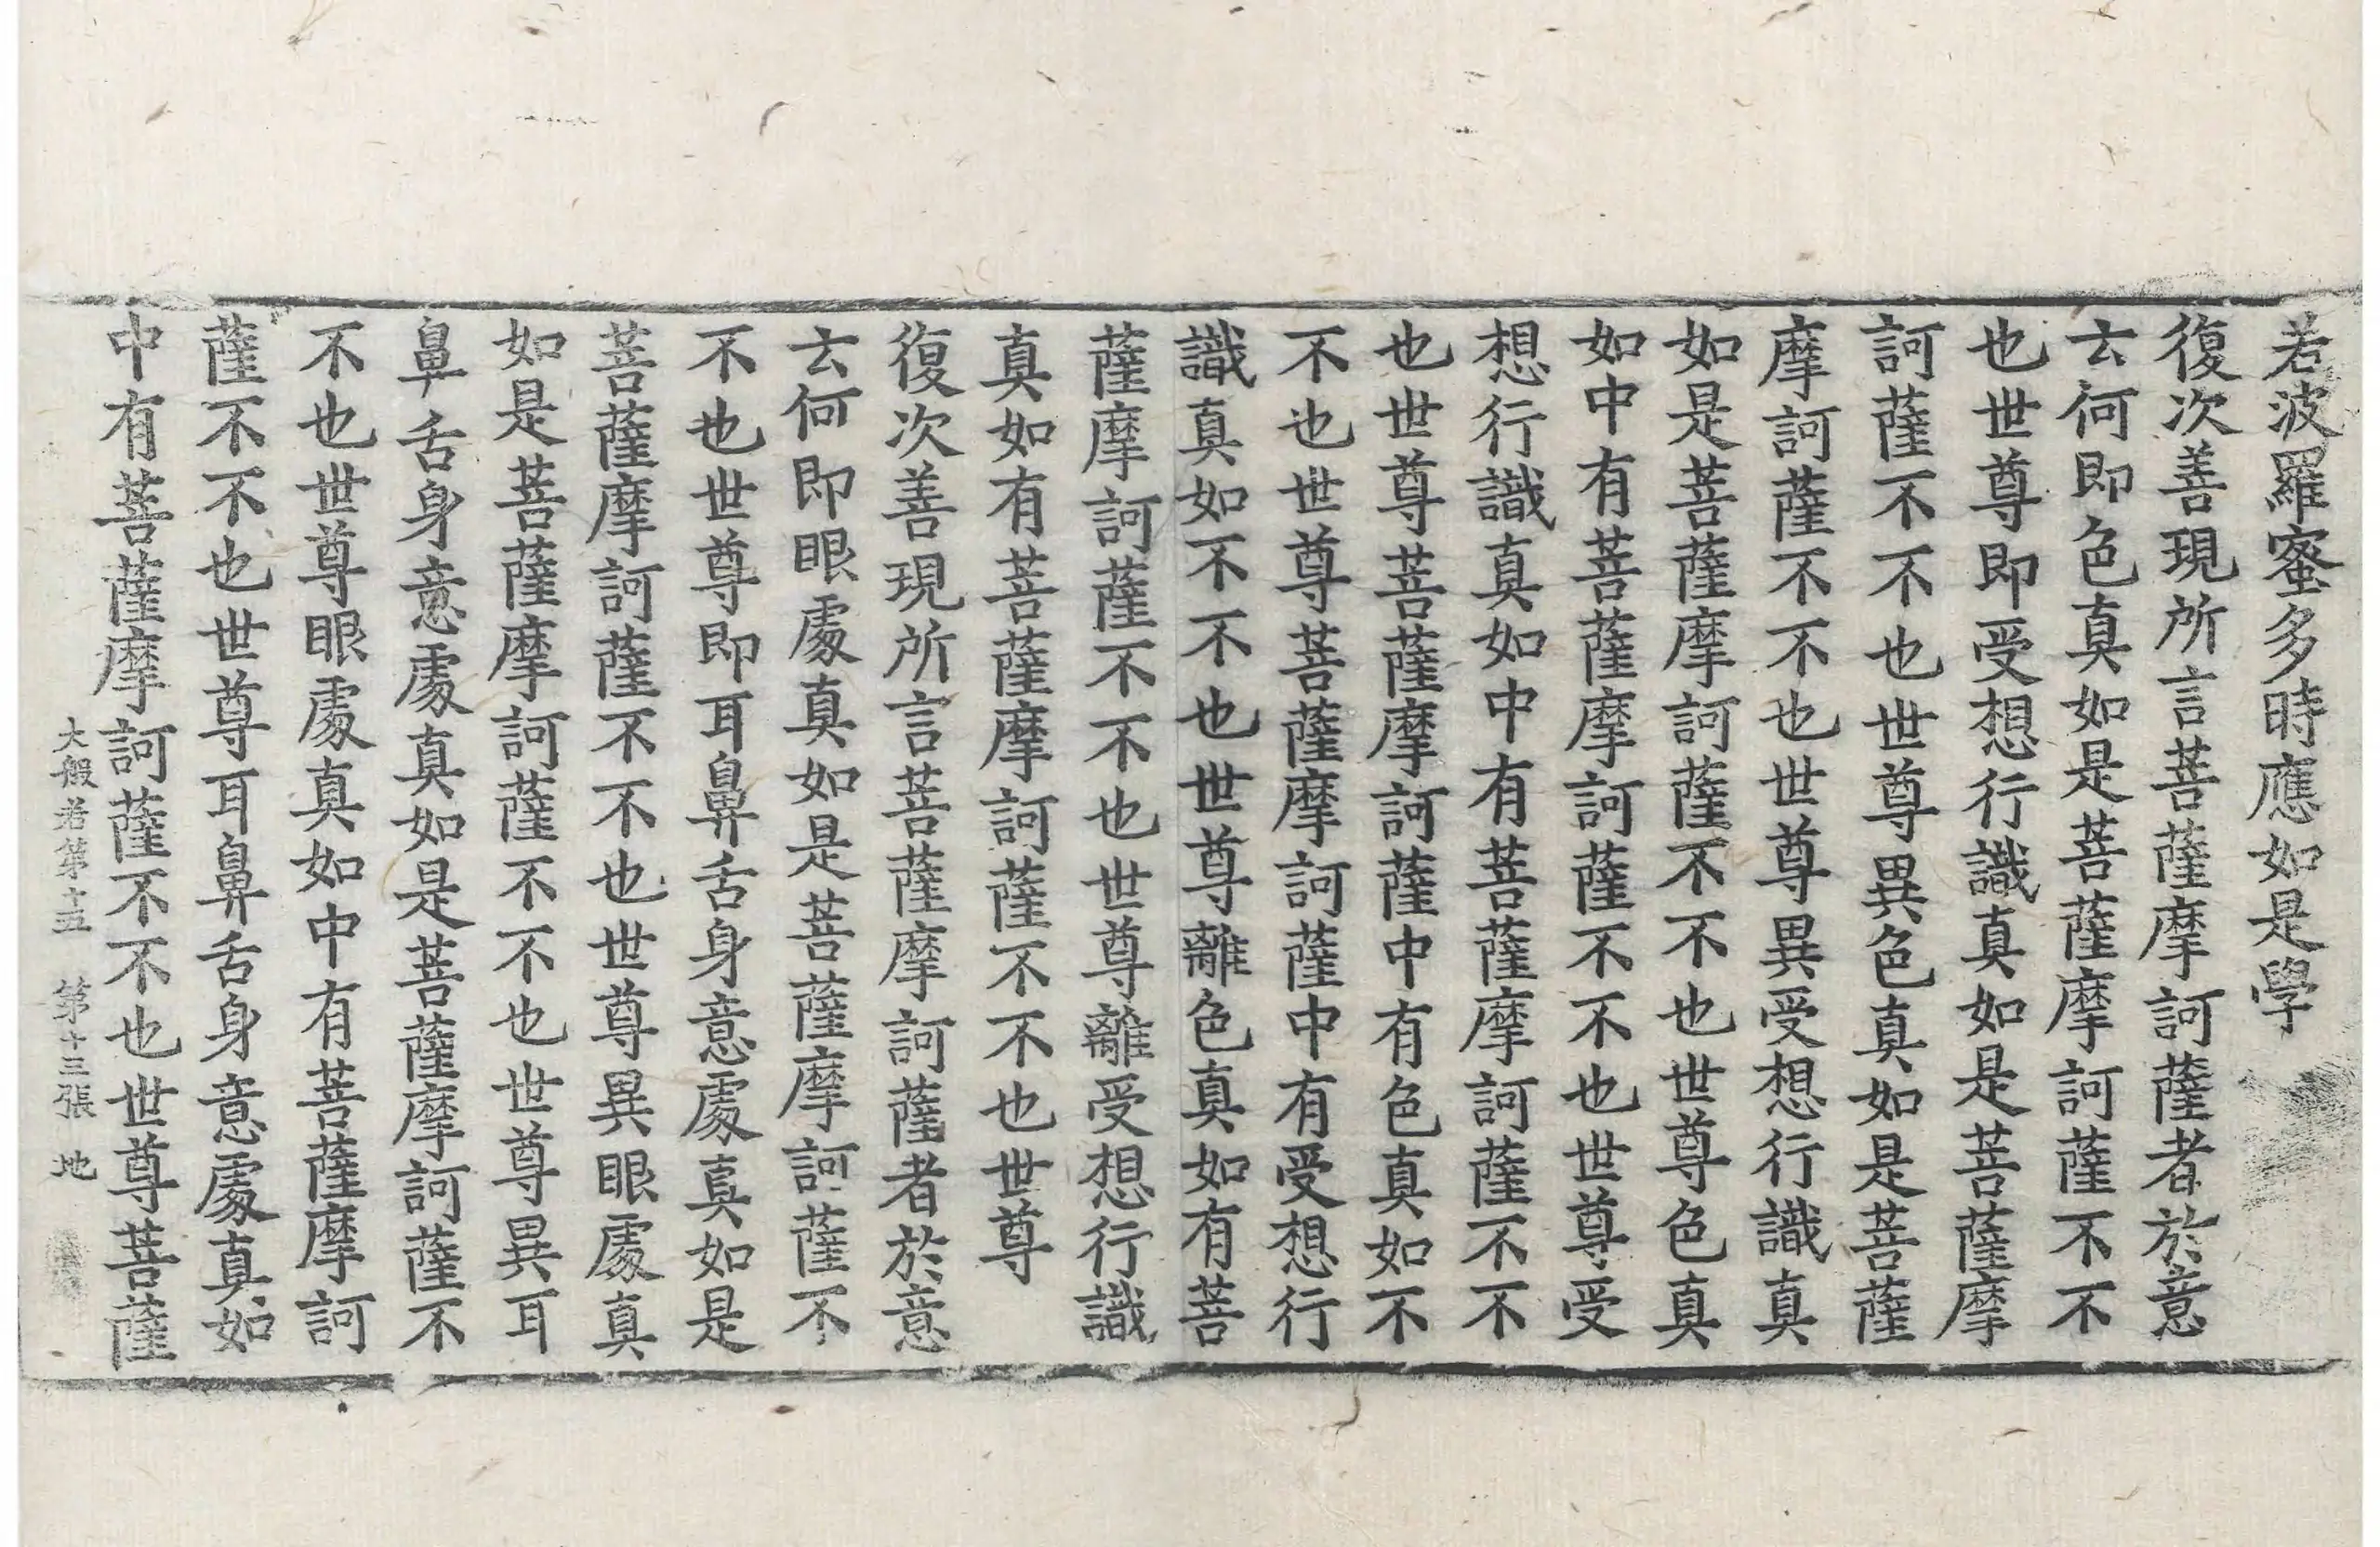 若波羅蜜多時應如是學
復次善現所言菩薩摩訶薩者於意
云何即色真如是菩薩摩訶薩不不
也世尊即受想行識真如是菩薩摩
訶薩不不也世尊異色真如是菩薩
摩訶薩不不也世尊異受想行識真
如是菩薩摩訶薩不不也世尊色真
如中有菩薩摩訶薩不不也世尊受
想行識真如中有菩薩摩訶薩不不
也世尊菩薩摩訶薩中有色真如不
不也世尊菩薩摩訶薩中有受想行
識真如不不也世尊離色真如有菩
薩摩訶薩不不也世尊離受想行識
真如有菩薩摩訶薩不不也世尊
復次善現所言菩薩摩訶薩者於意
云何即眼處真如是菩薩摩訶薩不
不也世尊即耳鼻舌身意處真如是
菩薩摩訶薩不不也世尊異眼處真
如是菩薩摩訶薩不不也世尊異耳
鼻舌身意處真如是菩薩摩訶薩不
不也世尊眼處真如中有菩薩摩訶
薩不不也世尊耳鼻舌身意處真如
中有菩薩摩訶薩不不也世尊菩薩
大般若第十五 第十三張 地